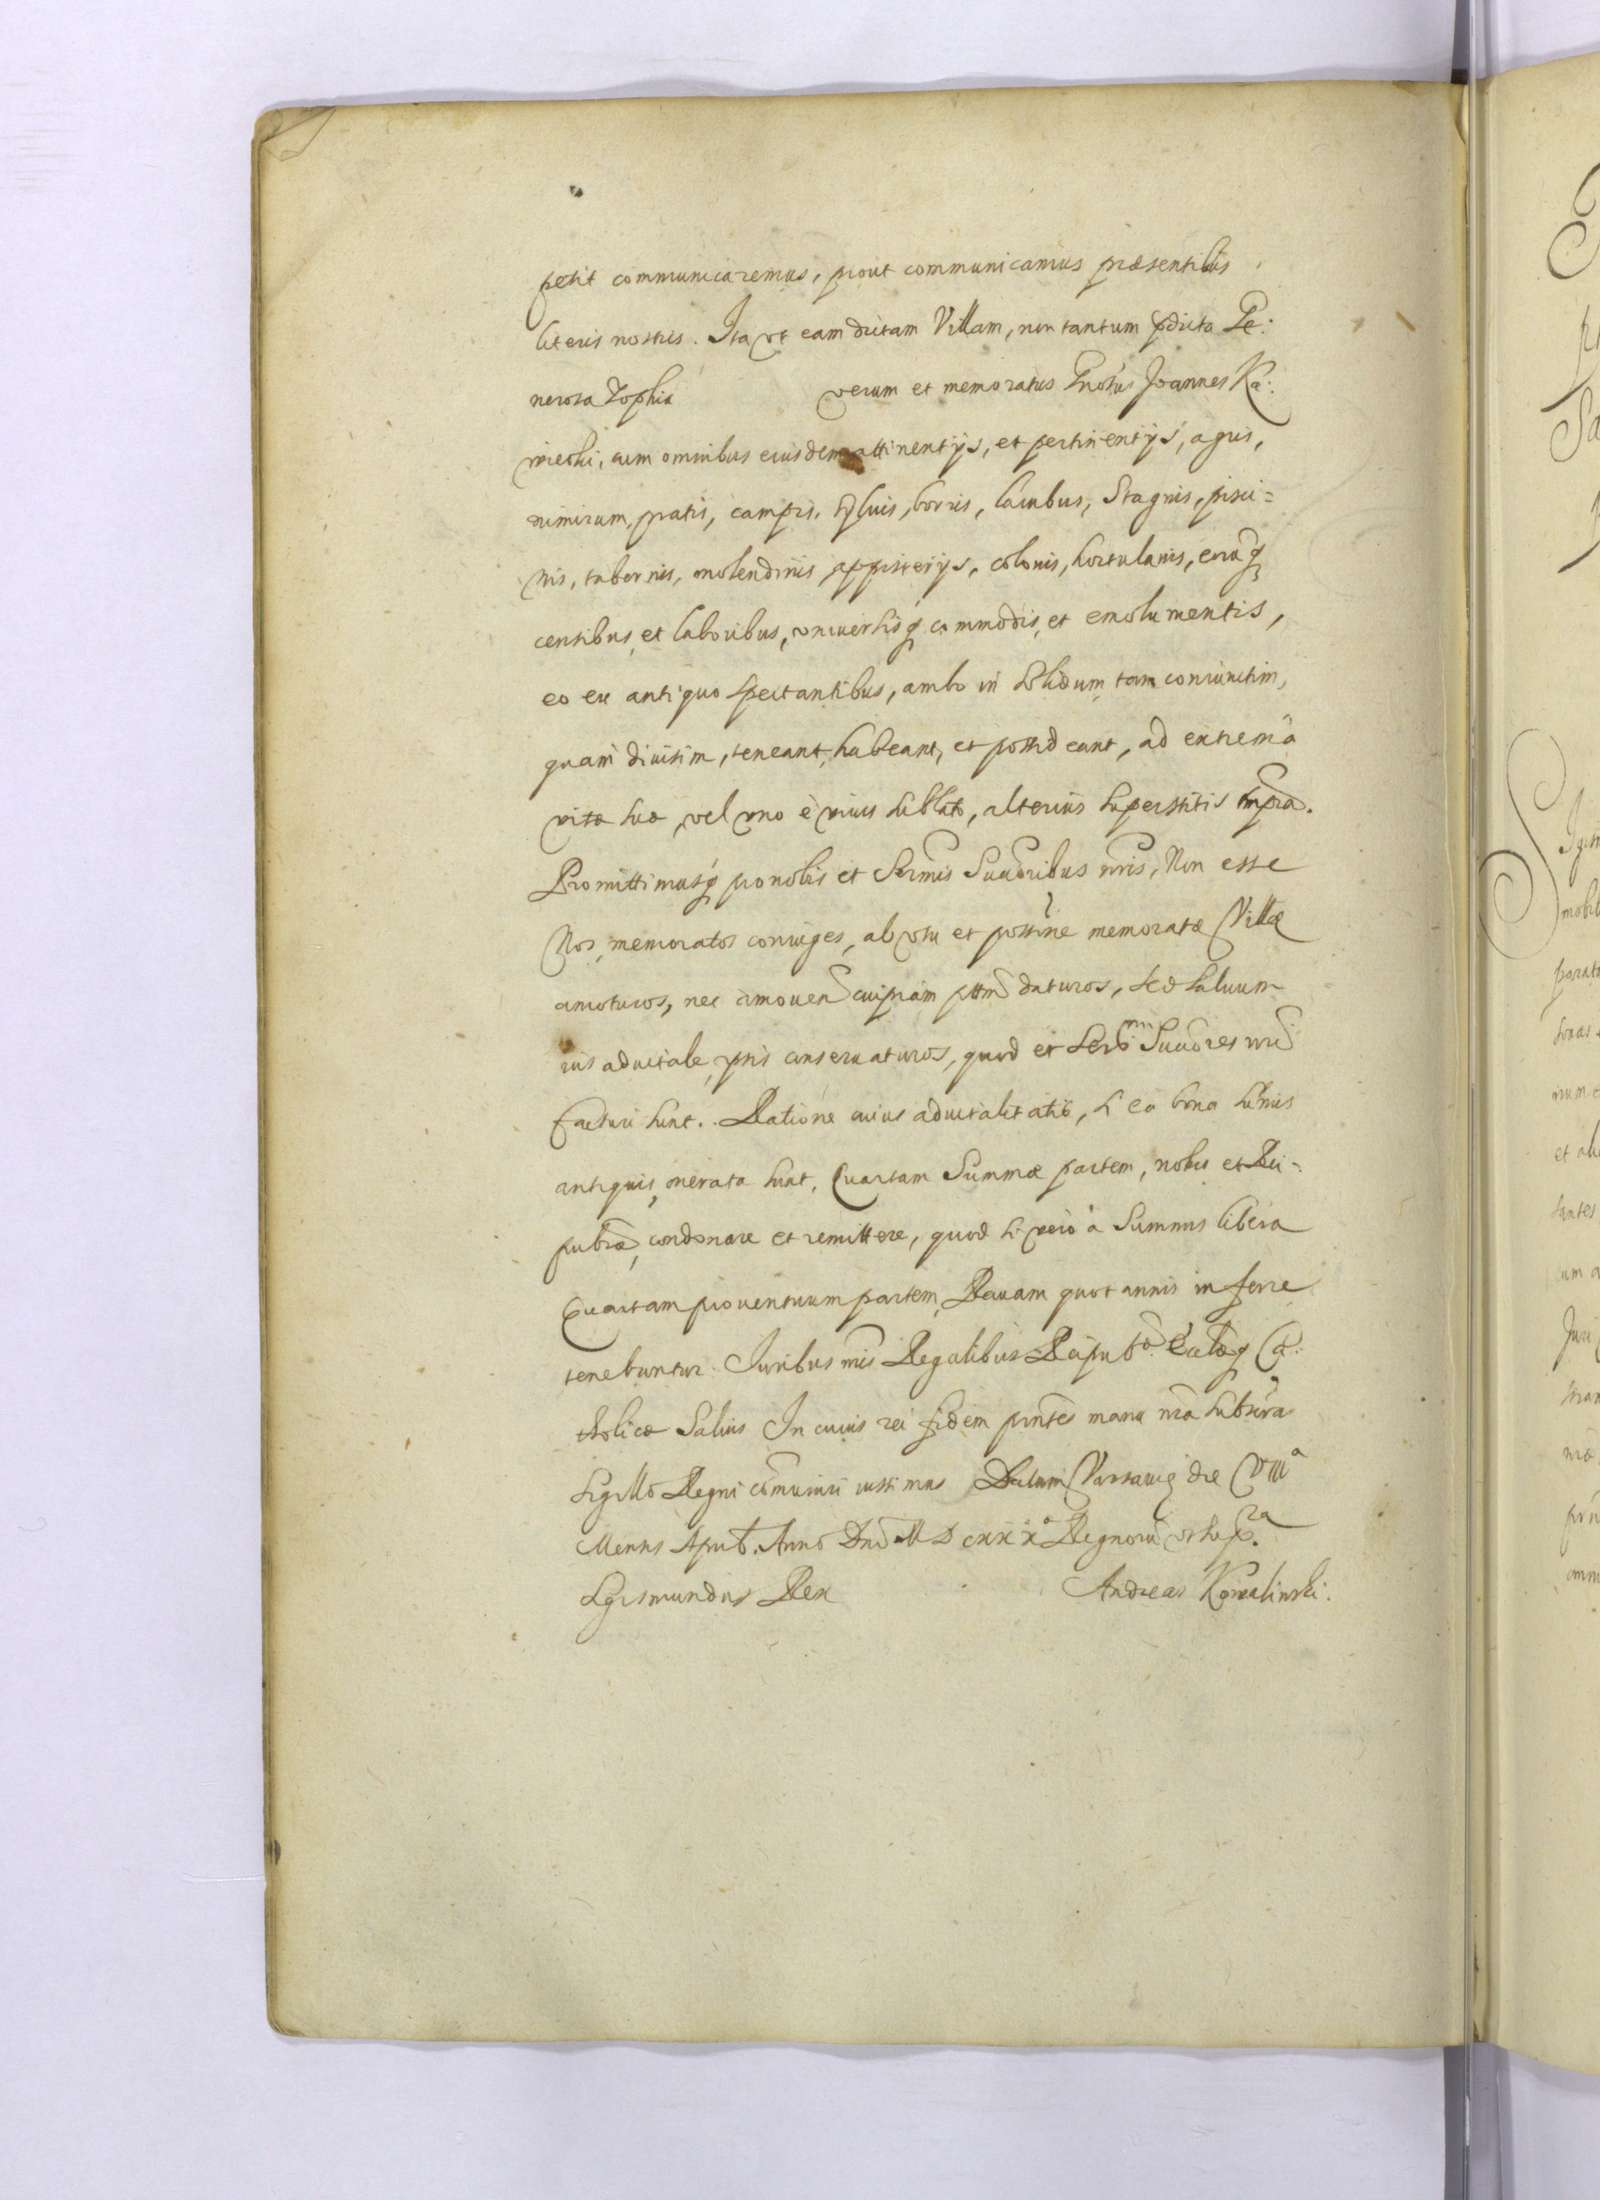 petit communicaremus, prout communicamus præsentibus
literis nostris. Ita vt eam dictam Villam, non tantum pdicta Ge:
nerosa Zophia verum et memoratus Gnosus Joannes Ka:
mienski, cum omnibus eiusdem attinentijs, et pertinentijs, agris,
nimirum, pratis, campis, syluis, borris, lacubus, Stagnis, pisci=
nis, tabernis, molendinis, colonis, hortulanis, eorūq
censibus, et laboribus, vniuersisq commodis, et emolumentis,
eo ex antiquo spectantibus, ambo in solidum tam coniunctim,
quam diuisim, teneant, habeant, et possideant, ad extrema
vitæ suæ, vel vno è viuis sublato, alterius superstitis tmpra.
Promittimusq pro nobis et Sermis Succribus nris, Non esse
Nos, memoratos coniuges, ab vsu et possne memoratæ Villæ
amoturos, nec amouen cuipiam pttm daturos, sed saluum
ius aduitale ipsis conseruaturos, quod et Sermi Succres nri
facturi sunt. Ratione cuius aduitalitatis, si ea bona summis
antiquis, onerata sunt, Quartam Summæ partem, nobis et Rei-
publæ, condonare et remittere, quod si vero à Summis libera
Quartam prouentuum partem, Rauam quot annis inferre
tenebuntur. Iuribus nris Regalibus Reipublæ Ecclæq Ca:
tholicæ Saluis In cuius rei fidem pntes manu nra subscra
sigillo Regni comuniri iussimus Datum Varsauiæ die VIIIa
Mensis Anno Dni M D Regnoru vt sup.ra
Sigismundus Rex Andreas